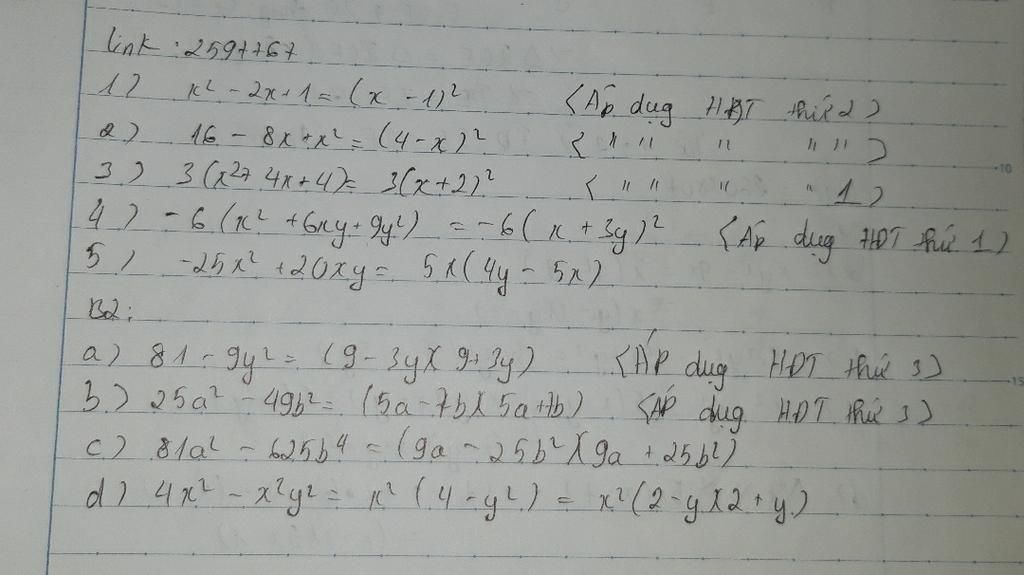 link : 2597767
1) x² - 2x + 1 = (x - 1)² (Áp dụg HĐT thứ 2)
2) 16 - 8x + x² = (4 - x)² ( " " " " " )
3) 3(x² + 4x + 4) = 3(x + 2)² ( " " " " 1 )
4) -6 (x² + 6xy + 9y²) = -6 (x + 3y)² (Áp dụg HĐT thứ 1)
5) -25x² + 20xy = 5x (4y - 5x)
B2:
a) 81 - 9y² = (9 - 3y)(9 + 3y) (ÁP dụg HĐT thứ 3)
b) 25a² - 49b² = (5a - 7b)(5a + 7b) (ÁP dụg HĐT thứ 3)
c) 81a² - 625b⁴ = (9a - 25b²)(9a + 25b²)
d) 4x² - x²y² = x² (4 - y²) = x² (2 - y)(2 + y)